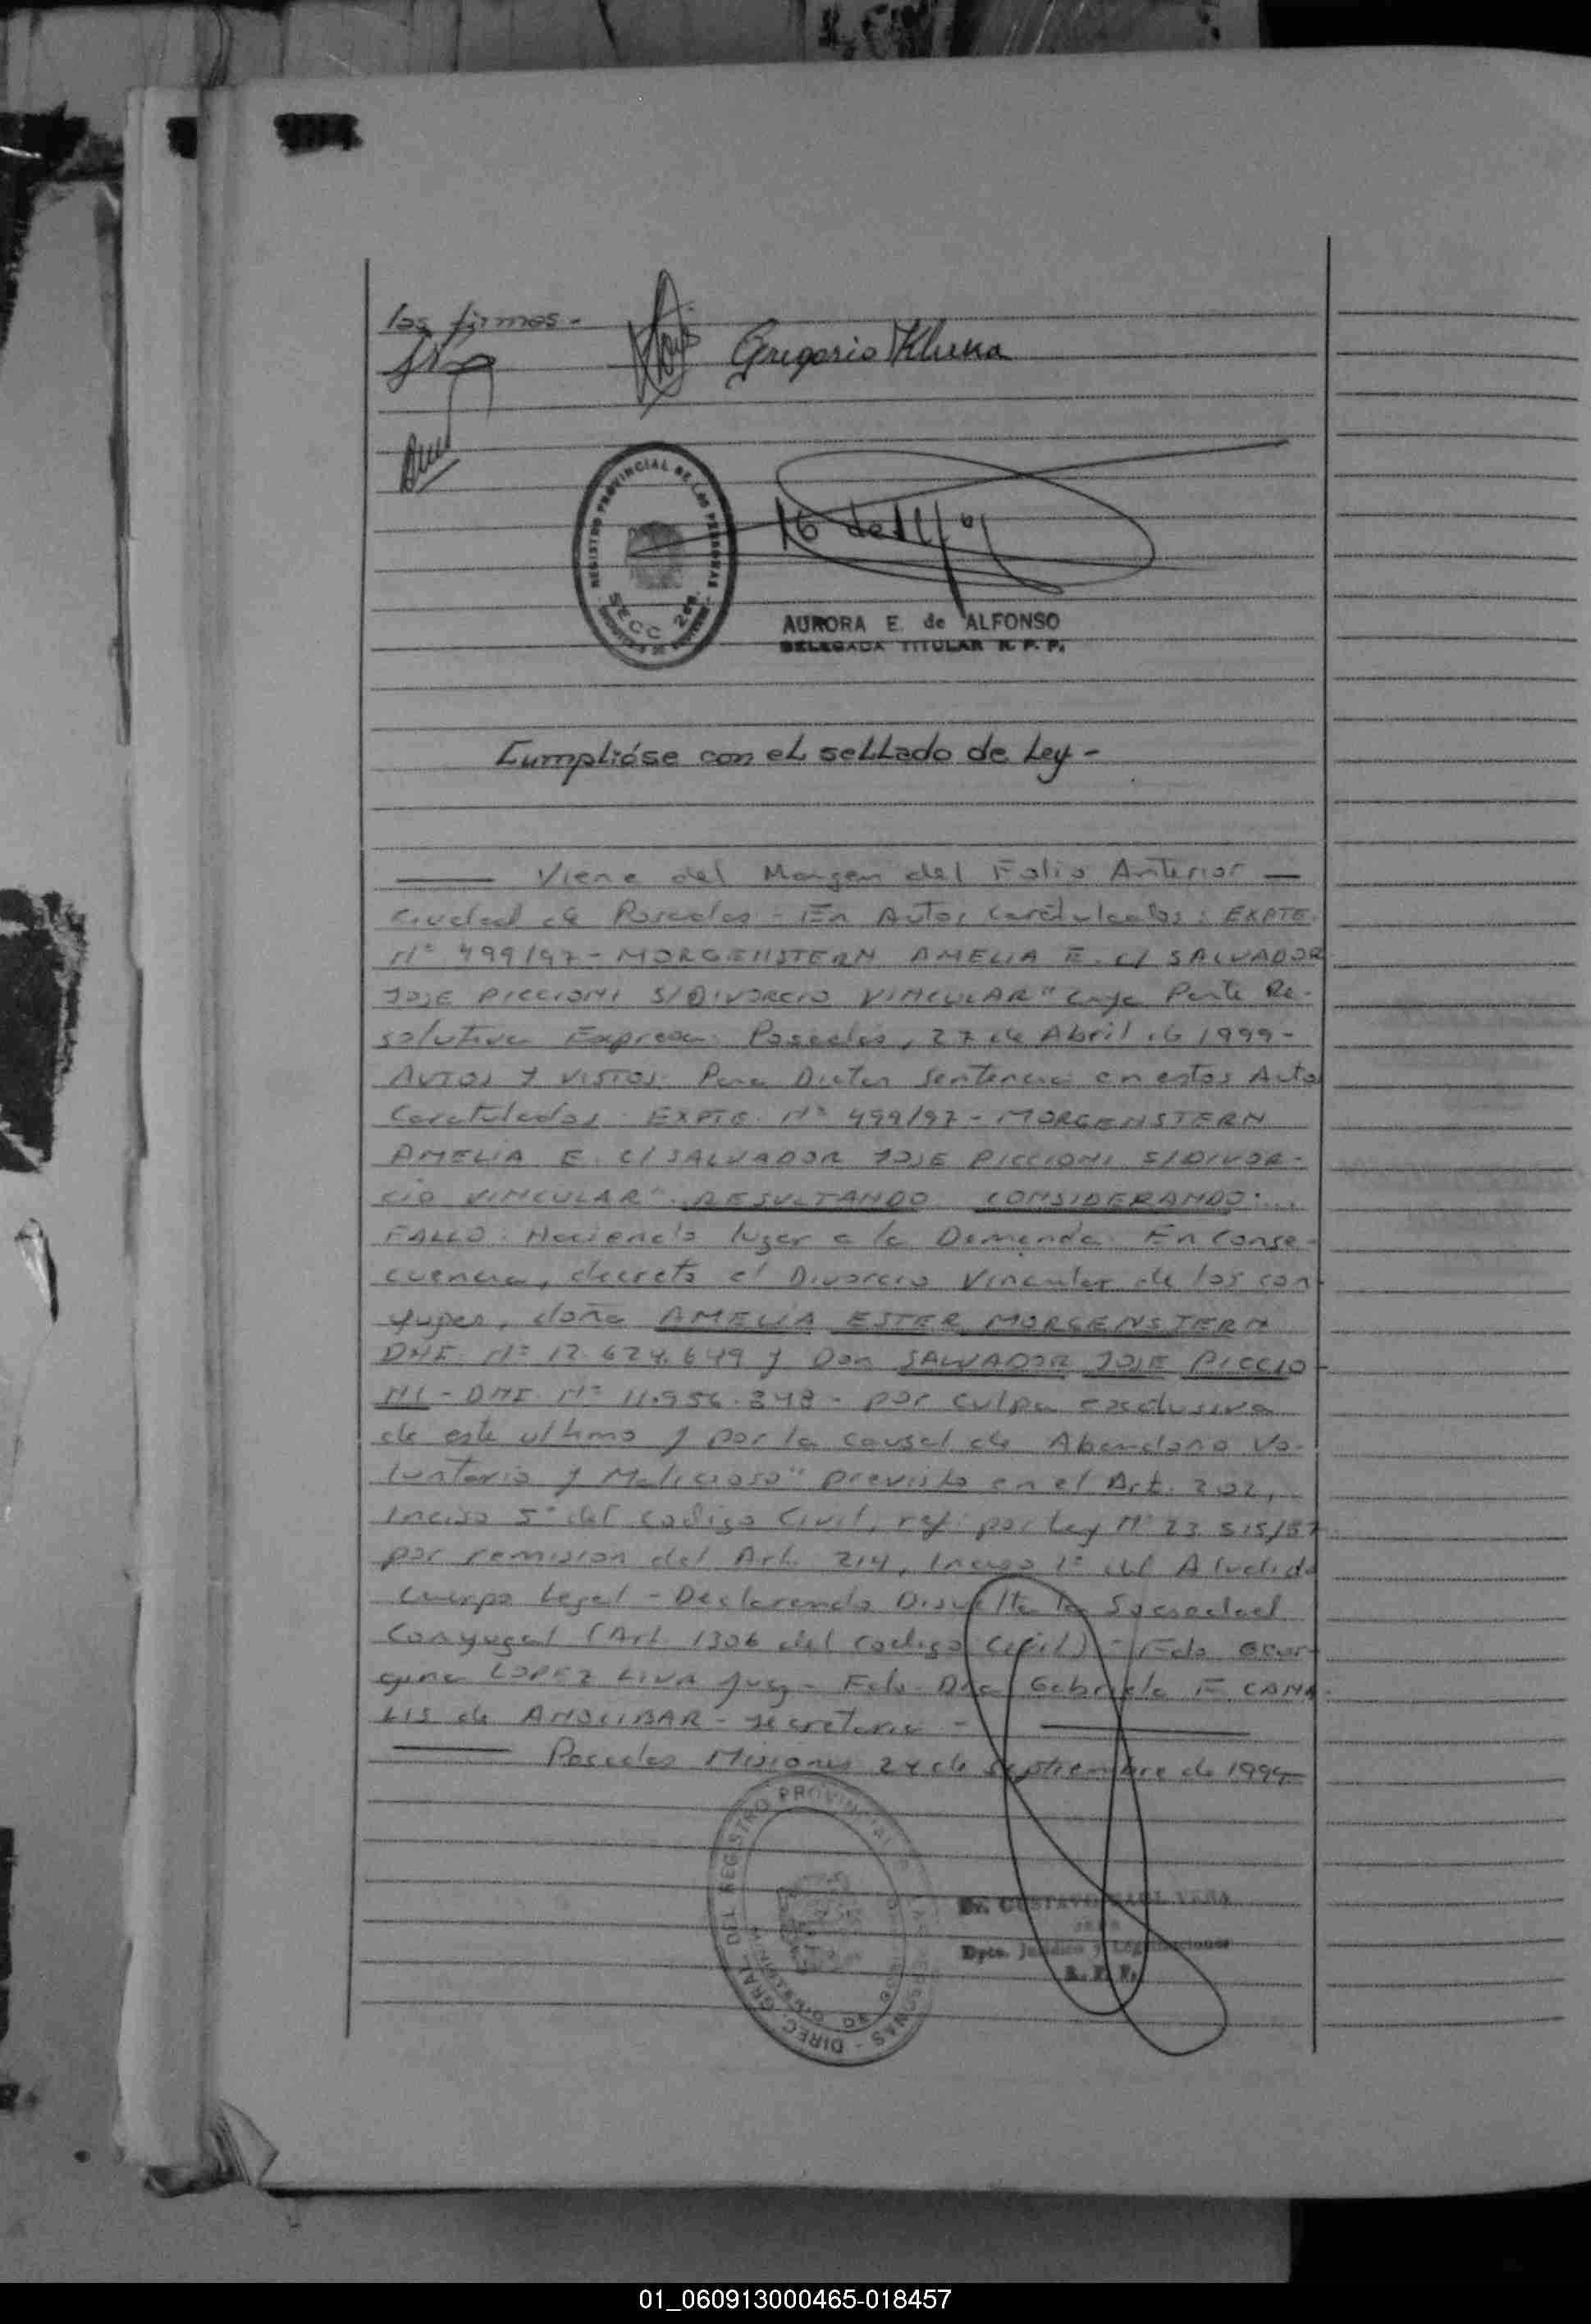 las firmas.-
Gregorio Kluka
REGISTRO PROVINCIAL DE LAS PERSONAS
SECC 2da.
AURORA E. de ALFONSO
DELEGADA TITULAR R. P. P.
Cumplióse con el sellado de Ley -
Viene del Margen del Folio Anterior
Ciudad de Posadas - En Autos Caratulados: EXPTE.
Nº 499/97 - MORGENSTERN AMELIA E. c/ SALVADOR
JOSE PICCIONI S/DIVORCIO VINCULAR" cuya Parte Re-
solutiva Expresa: Posadas, 27 de Abril de 1999-
AUTOS Y VISTOS: Para Dictar Sentencia en estos Autos
Caratulados: EXPTE. Nº 499/97 - MORGENSTERN
AMELIA E. C/ SALVADOR JOSE PICCIONI S/DIVOR-
CIO VINCULAR". RESULTANDO CONSIDERANDO:...
FALLO: Haciendo lugar a la Demanda. En Conse-
cuencia, decreto el Divorcio Vincular de los con-
yuges, doña AMELIA ESTER MORGENSTERN
DNI. Nº 12.624.649 y Don SALVADOR JOSE PICCIO-
NI - DNI. Nº 11.956.348 - por culpa exclusiva
de este ultimo y por la causal de Abandono Vo-
luntario y Malicioso" previsto en el Art. 202,
Inciso 5º del Codigo Civil, ref. por Ley Nº 23.515/87
por remision del Art. 214, Inciso 1º del Aludido
Cuerpo Legal - Declarando Disuelta la Sociedad
Conyugal (Art. 1306 del Codigo Civil) - Fdo Geor-
gina LOPEZ LIVA Juez - Fdo. Dra Gabriela F. CANA-
LIS de ANSLIBAR - Secretaria -
Posadas Misiones 24 de Septiembre de 1999
DIREC. GRAL. DEL REGISTRO PROVINCIAL DE LAS PERSONAS
Dr. GUSTAVO RAUL VERA
JEFE
Dpto. Jurídico y Legalizaciones
R. P. P.
01_060913000465-018457